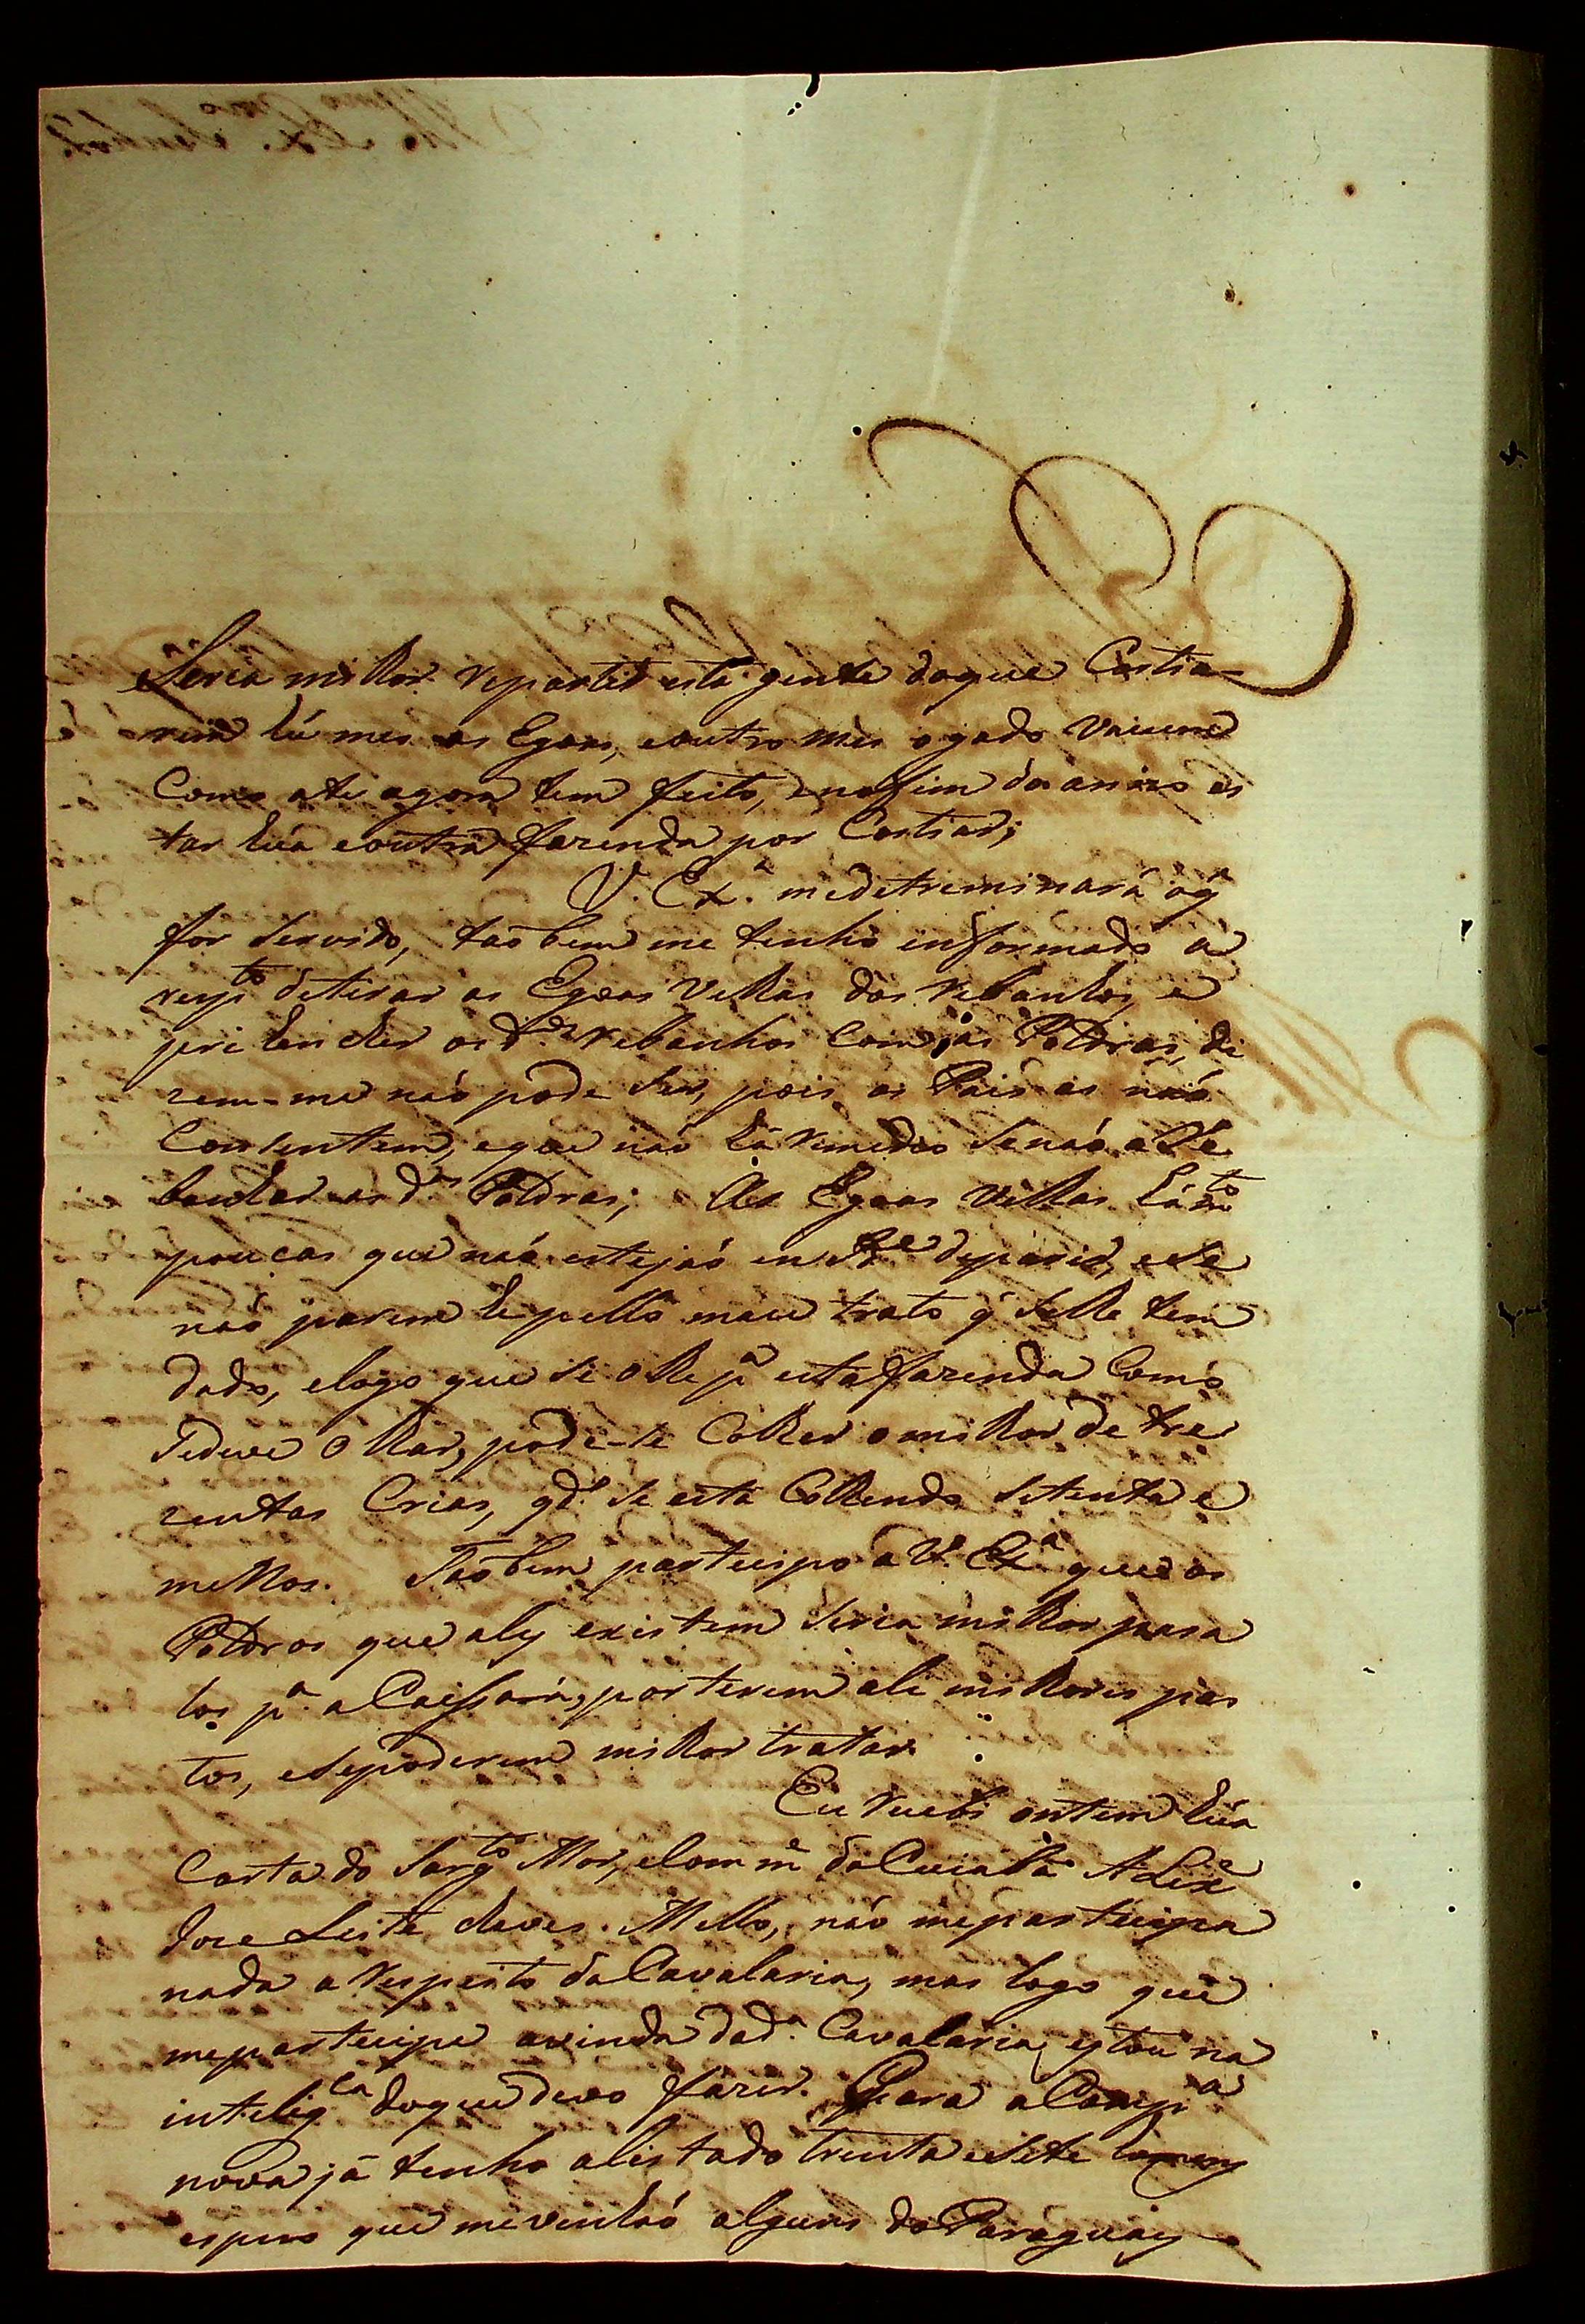 Seria milhor repartir esta gente doque Costia-
rem hú mes as Egoas, eoutro mes ogado vacum
Como ate agora tem feito, enofim do anno es
tar húa eoutra fazenda por Costiar;
V. Ex.ª medetreminará oq̃
for Servido, taóbem me tenho informado a
resp.to detirar as Egoas Velhas dos rebanhos, e
prihencher osd.os rebanhos Com as Poldras, di
zem-me naó pode Ser, pois os Pais as naó
Consentem, eque naó há remedio Senaó aRe
banhar as d.as Poldras; As Egoas Velhas há m.to
poucas que naó estejaó en id.e deparir, eSe
naó parem he pello mau trato q̃ Selhe tem
dado, elogo que Se olhe p.ª esta fazenda Como
Sedeve olhar, pode-se Colher omilhor de tre
zentas Crias, qd.º Se está Colhendo Setenta e
melhor. Taóbem participo a V. Ex.ª que os
Poldros que aly existem Seria milhor pasa
los p.ª a Caissara, porterem ali milhores pas
tos, eSepoderem milhor tratar.
Eu recebi ontem húa
Carta do Sarg.to Mor, eCom.e do Cuiabá A Lix.e
Joze Leite
Mello, naó meparticipa
nada a respeito da Cavalaria, mas logo que
meparticipe avinda dad.ª Cavalaria, estou na
intelig.ca doque devo fazer. Para aComp.ª
nova já tenho alistado trinta eSete homens
espero que mevenhaó alguns do Paraguay